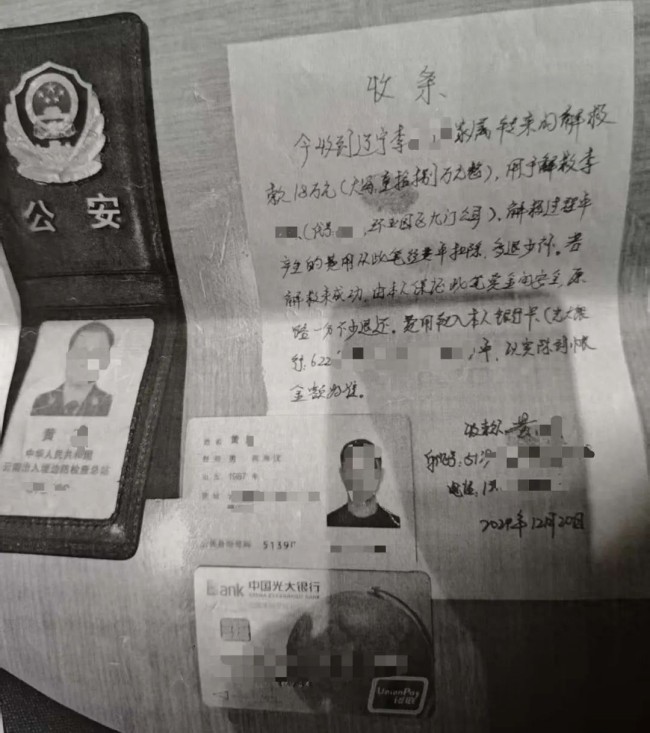 收条
今收到辽宁李 家属转来的解救
款18万元(大写 万元整),用于解救李
(代号 ,环亚园区九门公司)。解救过程中
产生的费用从此笔经费中扣除,多退少补。若
解救未成功,由本人保证此笔资金的安全,原
路一分不少退还。费用转入本人银行卡(光大银
行:622 )中,以实际到帐
金额为准。
收款人:黄
身份证:513
电话:1
2024年12月20日
公安
黄
中华人民共和国
云南出入境边防检查总站
姓名 黄
性别 男 民族 汉
出生 1987 年
住址
公民身份号码 5139
Bank 中国光大银行
CHINA EVERBRIGHT BANK
UnionPay
银联